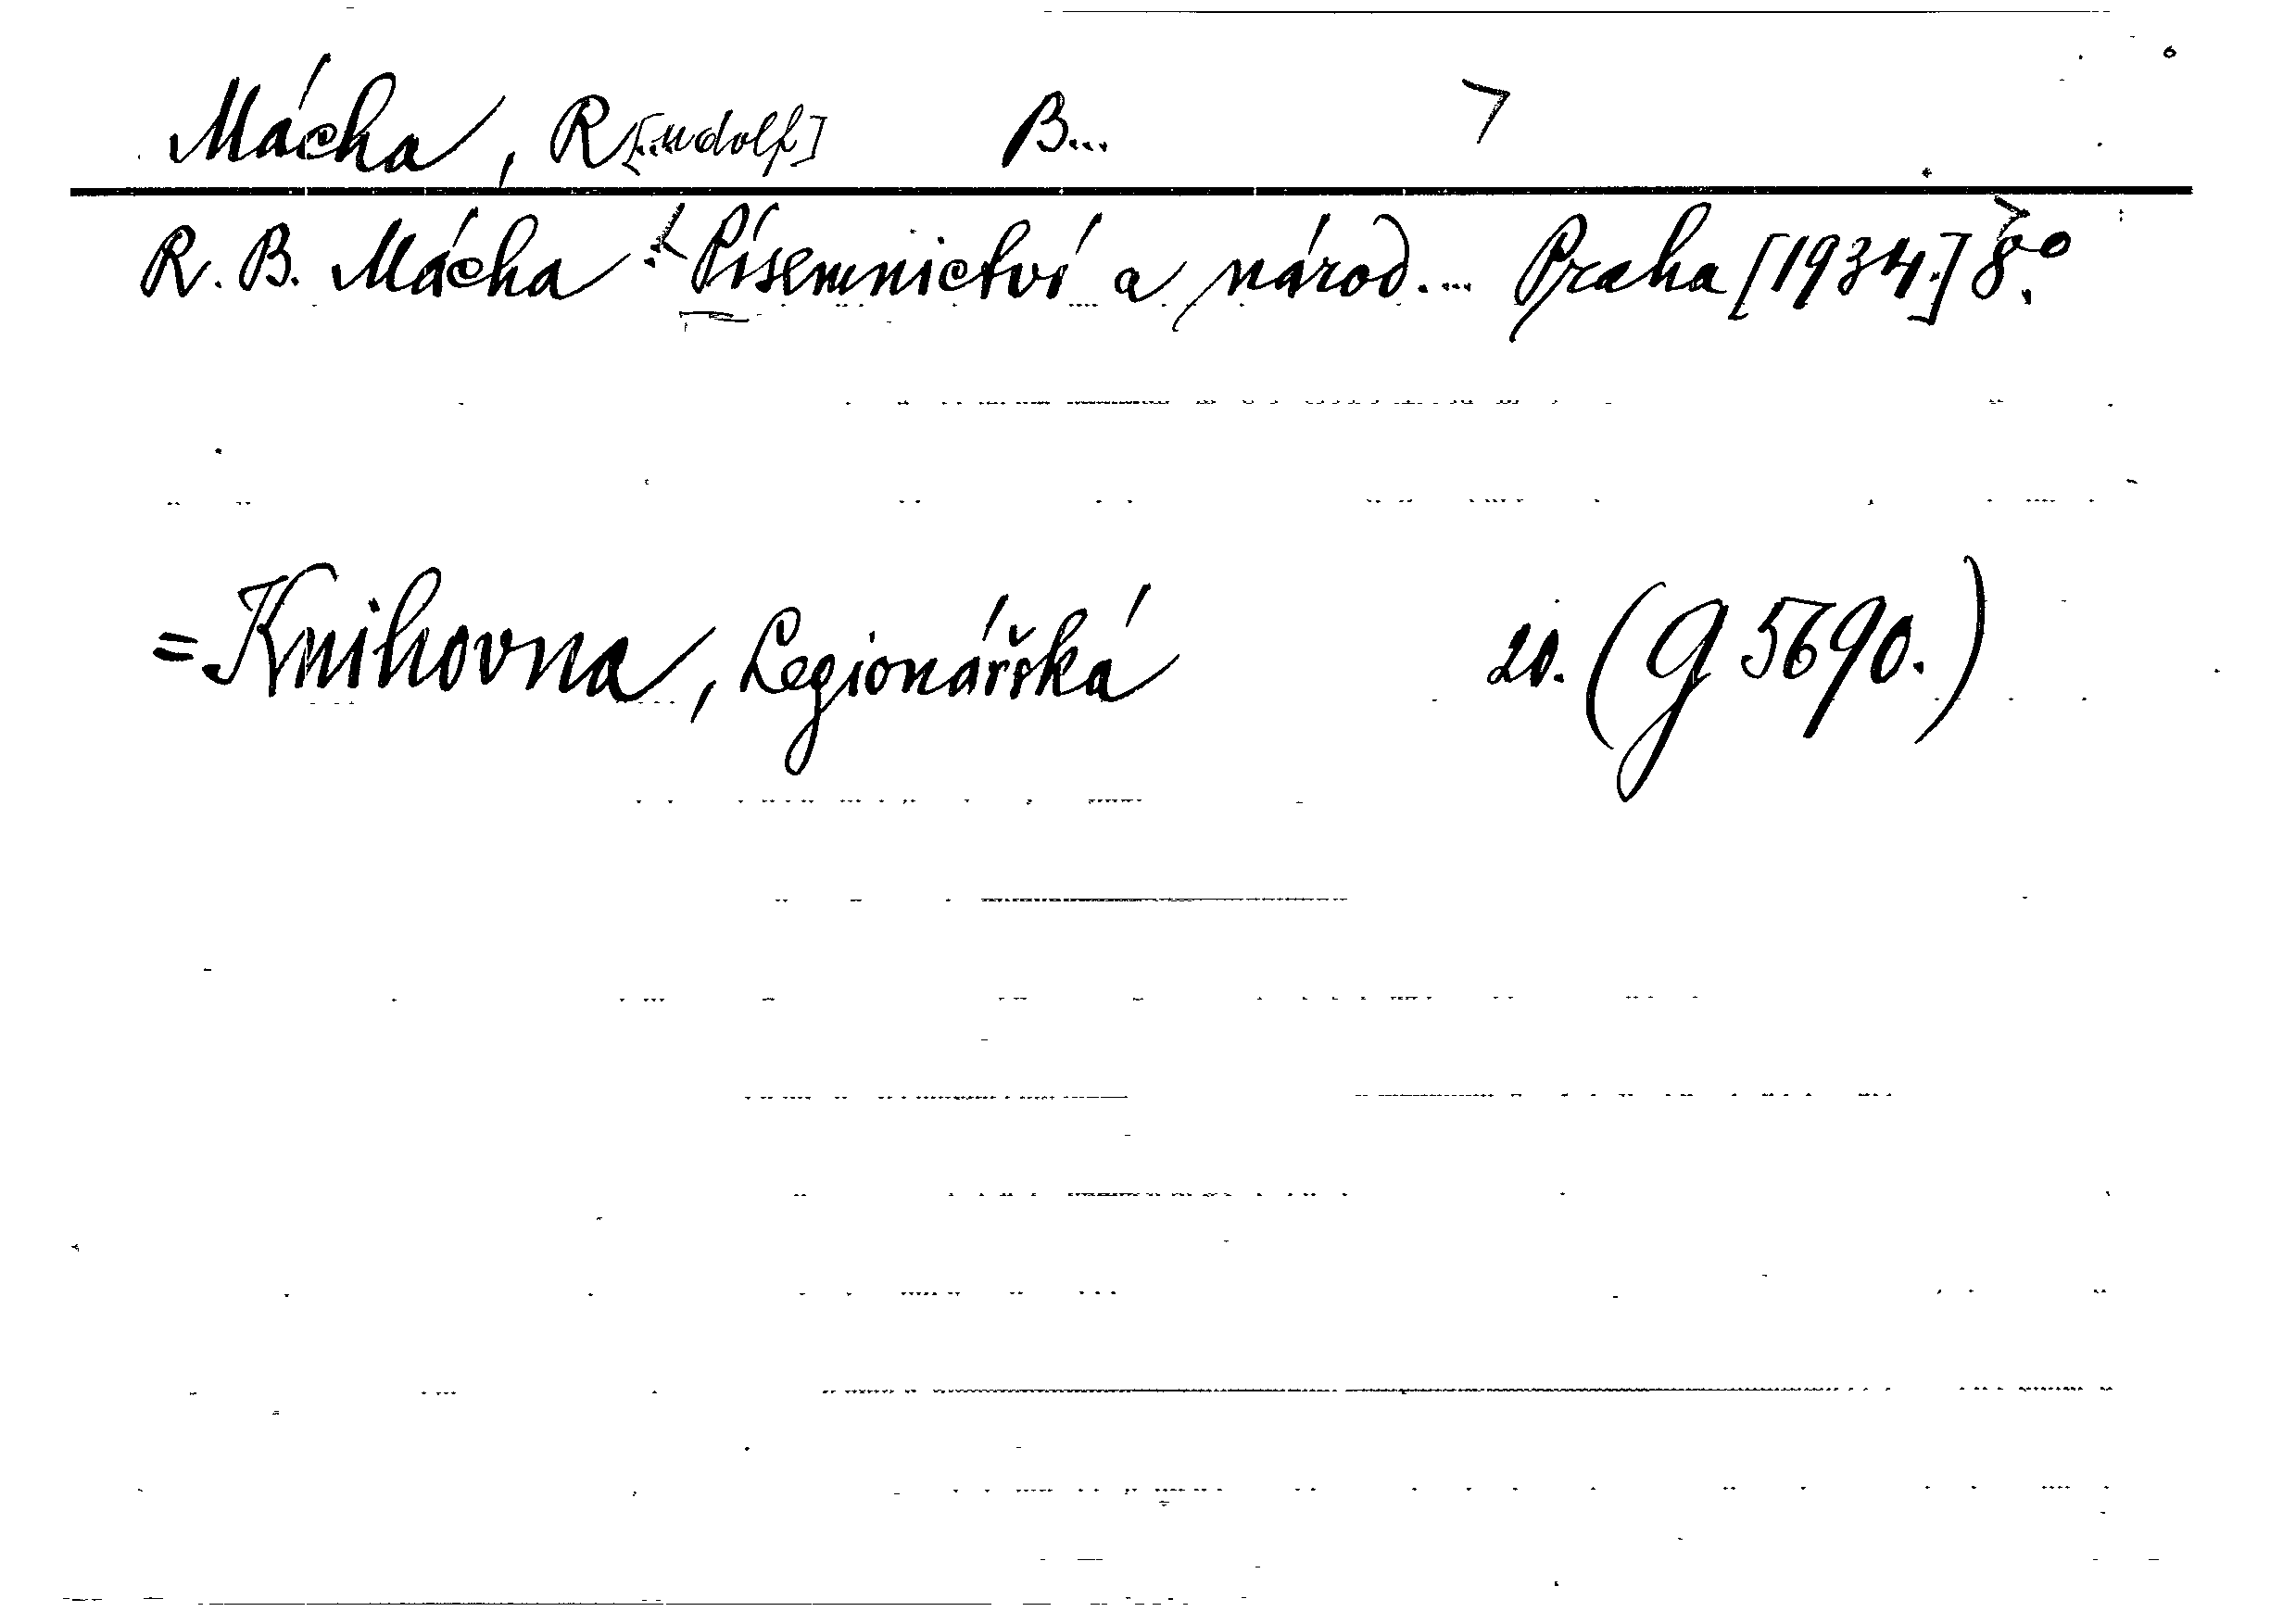 Mácha, R[...udolf] B...
R. B. Mácha: Písemnictví a národ... Praha [1934.] 8°.
= Knihovna, Legionářská 20. (G 5690.)